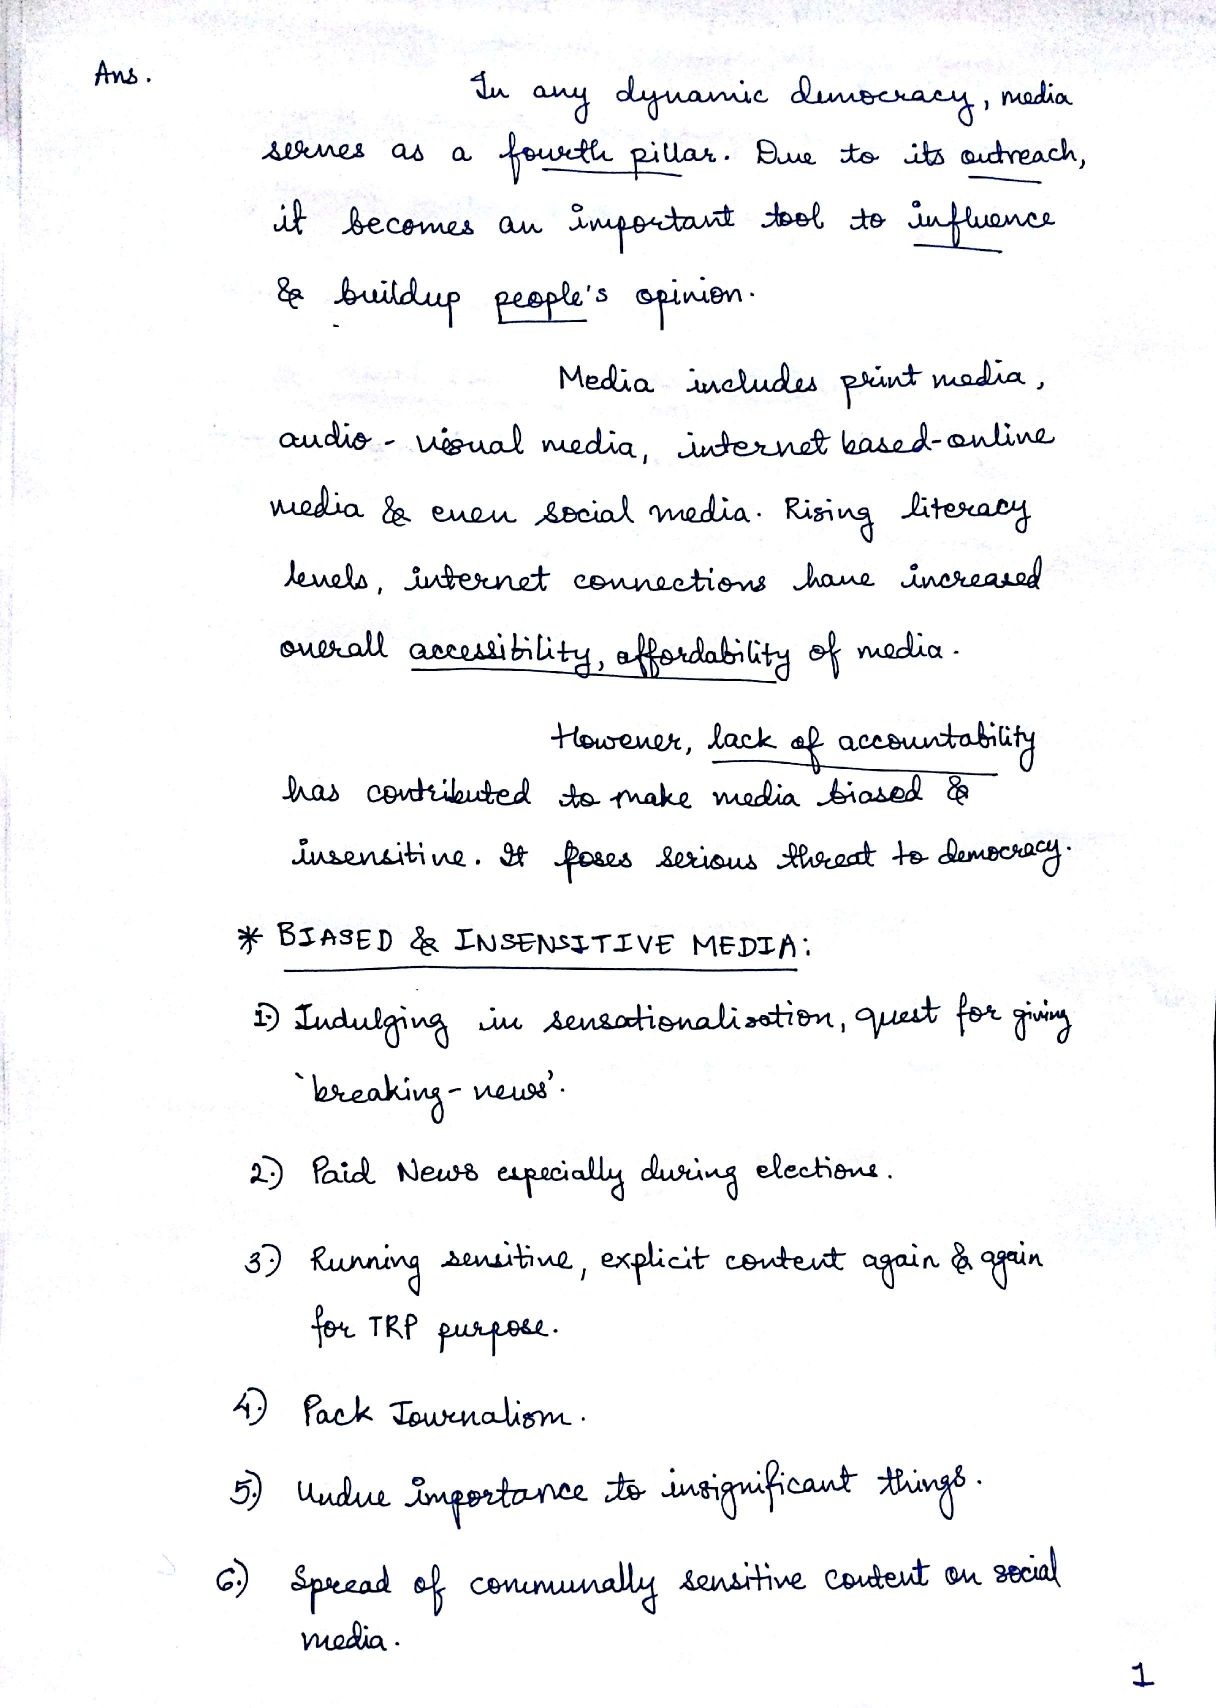 Ans.
In any dynamic democracy, media
serves as a fourth pillar. Due to its outreach,
it becomes an important tool to influence
& buildup people's opinion.
Media includes print media,
audio - visual media, internet based-online
media & even social media. Rising literacy
levels, internet connections have increased
overall accessibility, affordability of media.
However, lack of accountability
has contributed to make media biased &
insensitive. It poses serious threat to democracy.
* BIASED & INSENSITIVE MEDIA:
1.) Indulging in sensationalisation, quest for giving
'breaking-news'.
2.) Paid News especially during elections.
3.) Running sensitive, explicit content again & again
for TRP purpose.
4.) Pack Journalism.
5.) Undue importance to insignificant things.
6.) Spread of communally sensitive content on social
media.
1